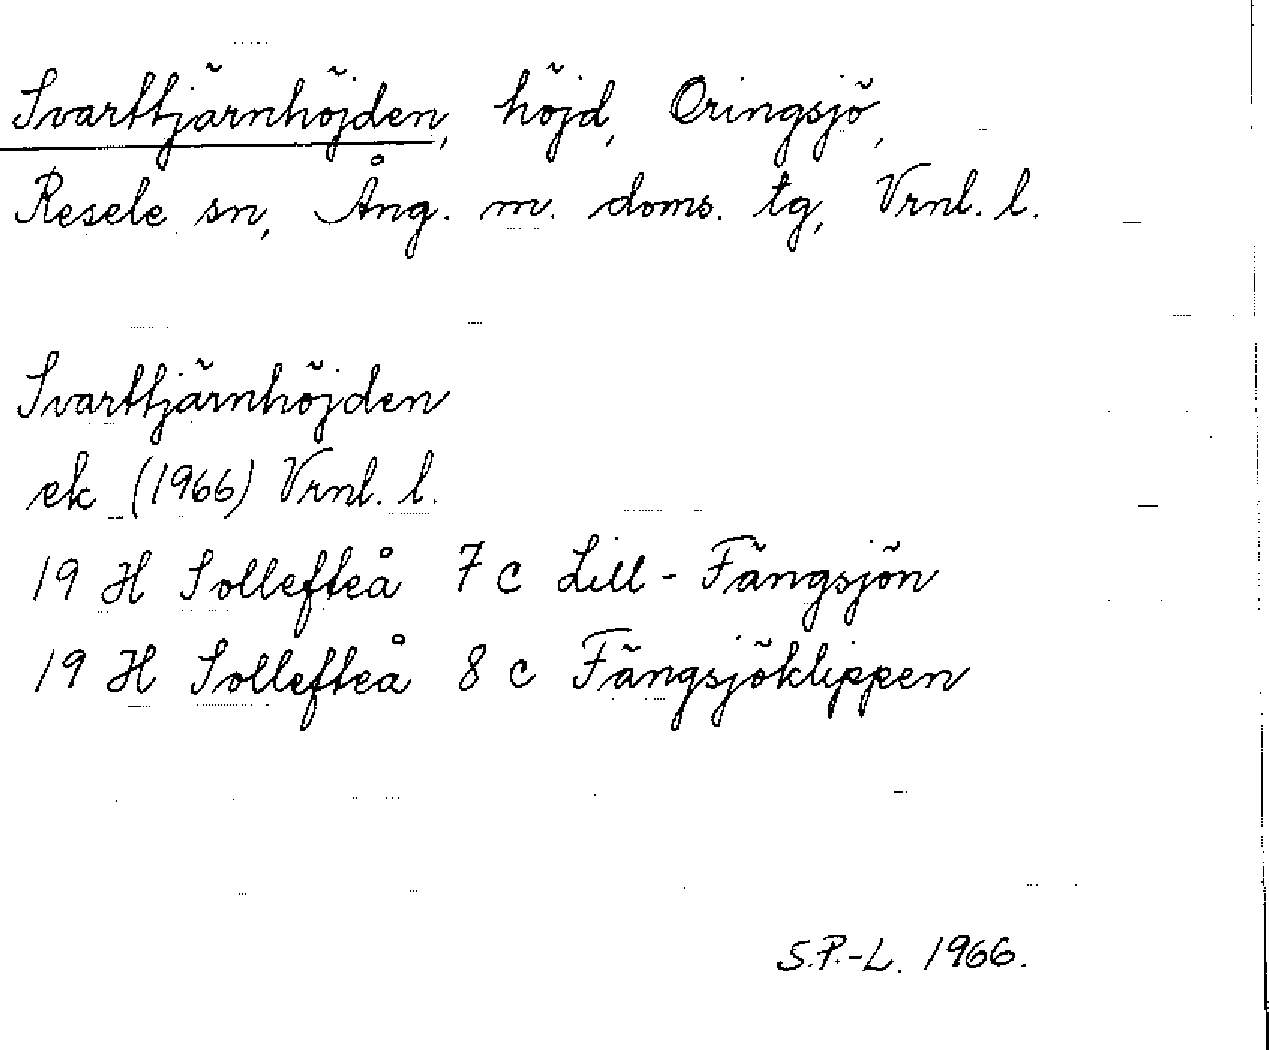 Svarttjärnhöjden, höjd, Oringsjö,
Resele sn, Ång. m. doms. tg, Vrnl. l.
Svarttjärnhöjden
ek (1966) Vrnl. l.
19 H Sollefteå 7 c Lill-Fängsjön
19 H Sollefteå 8 c Fängsjöklippen
S.P.-L. 1966.